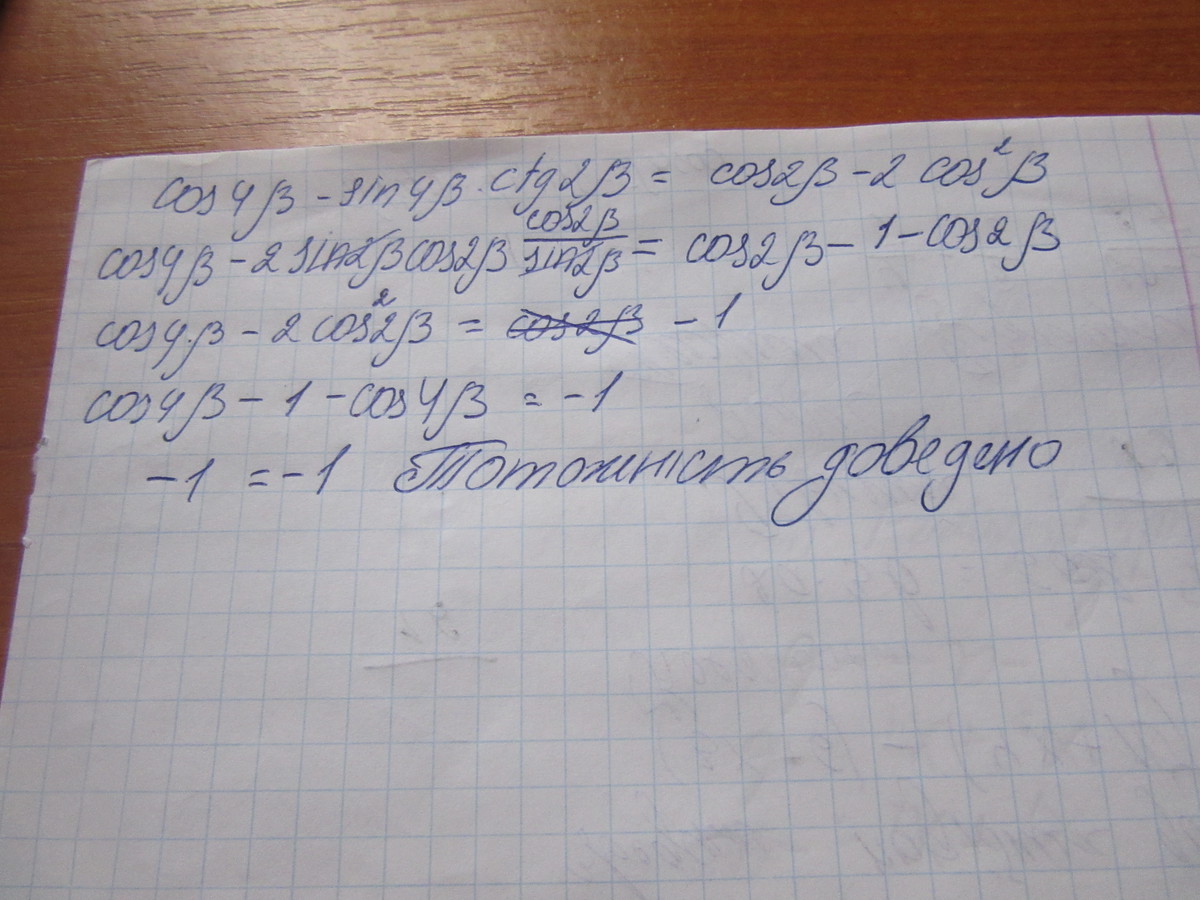 cos4β - sin4β · ctg2β = cos2β - 2 cos²β
cos4β - 2 sin2β cos2β cos2β/sin2β = cos2β - 1 - cos2β
cos4β - 2 cos²2β = cos2β - 1
cos4β - 1 - cos4β = -1
-1 = -1 Тотожність доведено